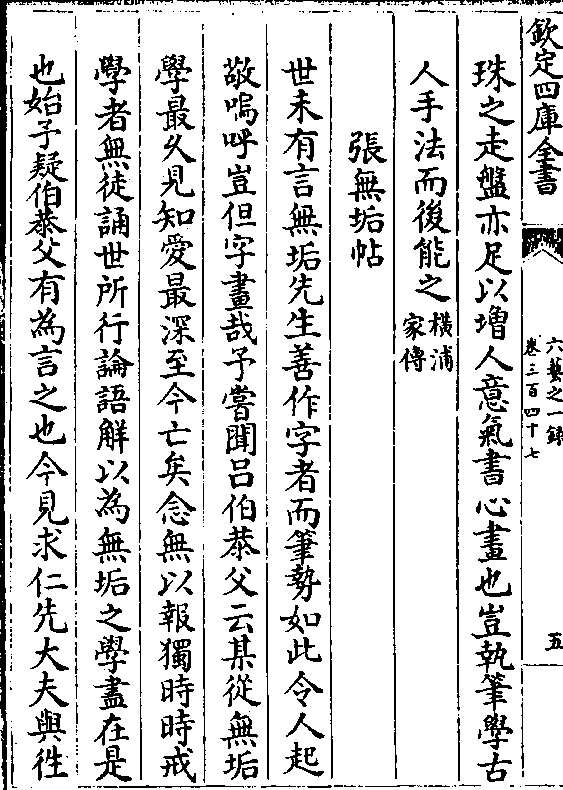 欽定四庫全書
六藝之一録
卷三百四十七
五
珠之走盤亦足以増人意氣書心畫也豈執筆學古
人手法而後能之横浦家傳
張無垢帖
世未有言無垢先生善作字者而筆勢如此令人起
敬嗚呼豈但字畫哉予嘗聞吕伯恭父云某從無垢
學最久見知愛最深至今亡矣念無以報獨時時戒
學者無徒誦世所行論語解以為無垢之學盡在是
也始予疑伯恭父有為言之也今見求仁先大夫與徃